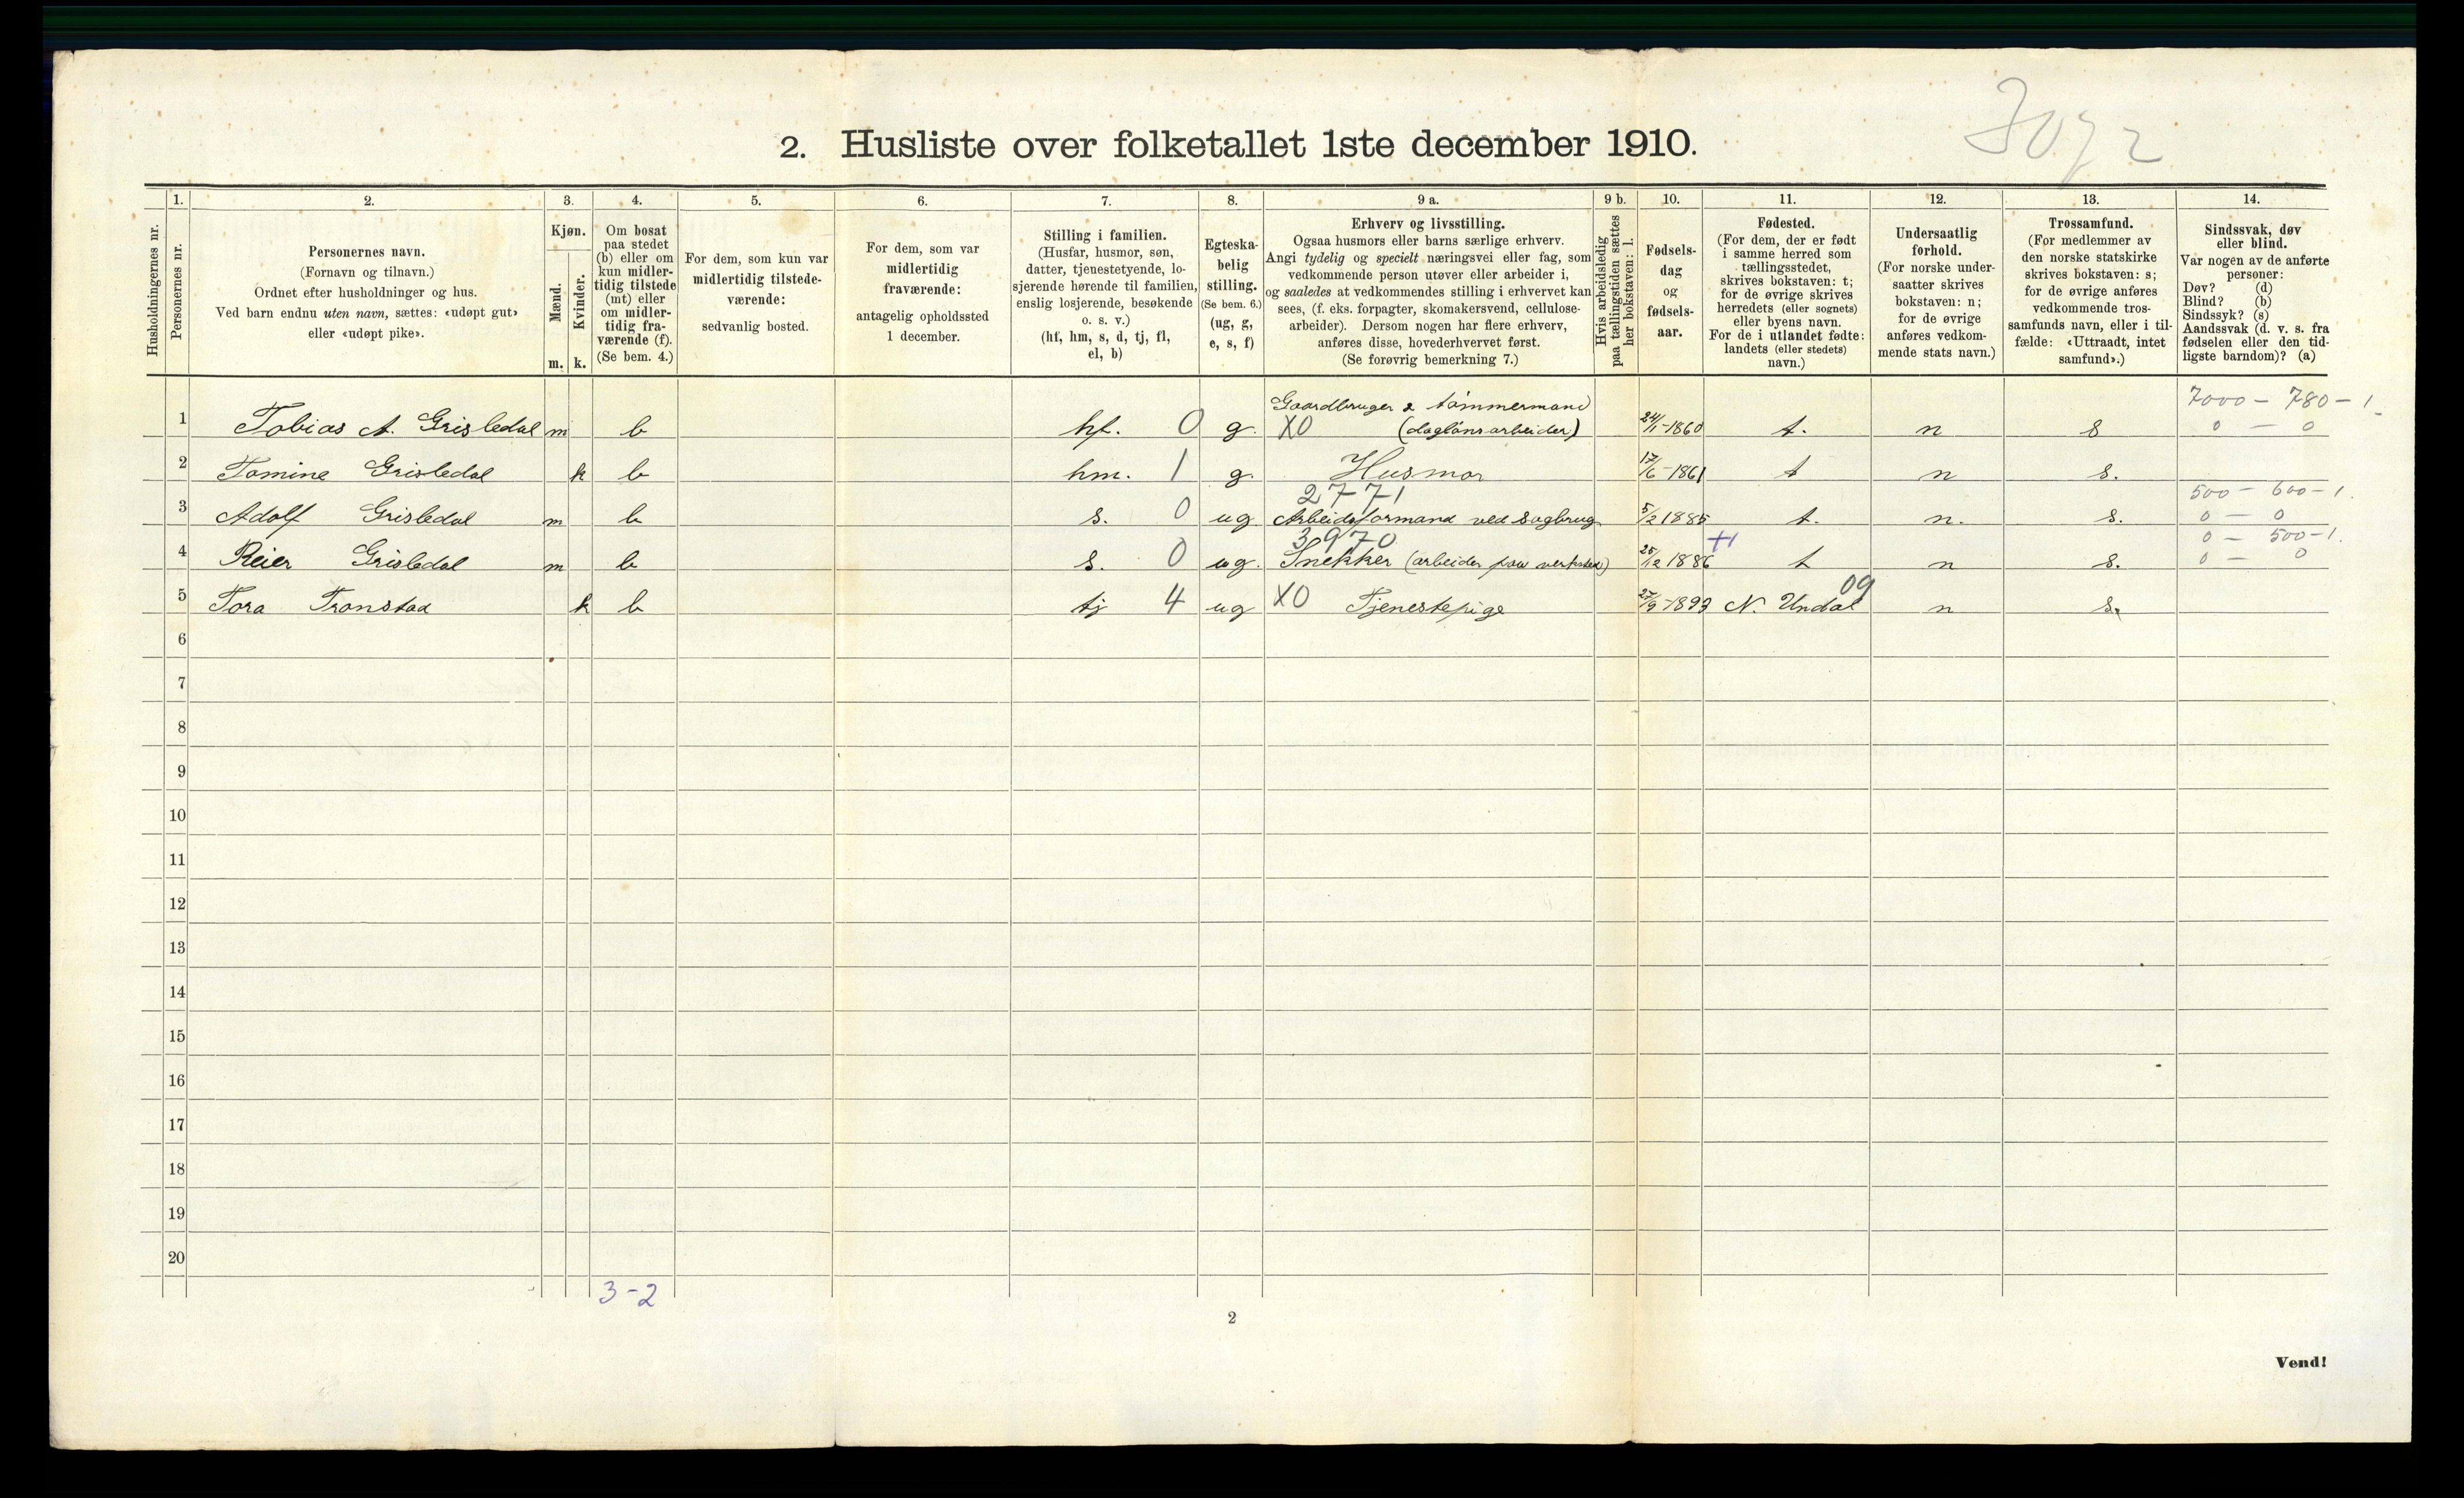 2. Husliste over folketallet 1ste december 1910.
1. 2. 3. 4. 5. 6. 7. 8. 9 a. 9 b. 10. 11. 12. 13. 14.
Husholdningernes nr.
Personernes nr.
Personernes navn.
(Fornavn og tilnavn.)
Ordnet efter husholdninger og hus.
Ved barn endnu uten navn, sættes: «udøpt gut»
eller «udøpt pike».
Kjøn.
Mænd.
m.
Kvinder.
k.
Om bosat
paa stedet
(b) eller om
kun midler-
tidig tilstede
(mt) eller
om midler-
tidig fra-
værende (f).
(Se bem. 4.)
For dem, som kun var
midlertidig tilstede-
værende:
sedvanlig bosted.
For dem, som var
midlertidig
fraværende:
antagelig opholdssted
1 december.
Stilling i familien.
(Husfar, husmor, søn,
datter, tjenestetyende, lo-
sjerende hørende til familien,
enslig losjerende, besøkende
o. s. v.)
(hf, hm, s, d, tj, fl,
el, b)
Egteska-
belig
stilling.
(Se bem. 6.)
(ug, g,
e, s, f)
Erhverv og livsstilling.
Ogsaa husmors eller barns særlige erhverv.
Angi tydelig og specielt næringsvei eller fag, som
vedkommende person utøver eller arbeider i,
og saaledes at vedkommendes stilling i erhvervet kan
sees, (f. eks. forpagter, skomakersvend, cellulose-
arbeider). Dersom nogen har flere erhverv,
anføres disse, hovederhvervet først.
(Se forøvrig bemerkning 7.)
Hvis arbeidsledig
paa tællingstiden sættes
her bokstaven: l.
Fødsels-
dag
og
fødsels-
aar.
Fødested.
(For dem, der er født
i samme herred som
tællingsstedet,
skrives bokstaven: t;
for de øvrige skrives
herredets (eller sognets)
eller byens navn.
For de i utlandet fødte:
landets (eller stedets)
navn.)
Undersaatlig
forhold.
(For norske under-
saatter skrives
bokstaven: n;
for de øvrige
anføres vedkom-
mende stats navn.)
Trossamfund.
(For medlemmer av
den norske statskirke
skrives bokstaven: s;
for de øvrige anføres
vedkommende tros-
samfunds navn, eller i til-
fælde: «Uttraadt, intet
samfund».)
Sindssvak, døv
eller blind.
Var nogen av de anførte
personer:
Døv? (d)
Blind? (b)
Sindssyk? (s)
Aandssvak (d. v. s. fra
fødselen eller den tid-
ligste barndom)? (a)
Gaardbruger & tømmermand 7000 - 780 - 1
1 Tobias A. Grisledal m b hf. 0 g. X0 (daglønsarbeider) 24/1-1860 t. n s 0 - 0
2 Tomine Grisledal k b hm. 1 g. Husmor 17/6-1861 t n s.
2771 500 - 600 - 1.
3 Adolf Grisledal m b s. 0 ug Arbeidsformand ved sagbrug 5/2 1885 t. n. s. 0 - 0
3970 +1 0 - 500 - 1.
4 Reier Grisledal m b s. 0 ug. Snekker (arbeider paa verksted) 25/12 1886 t n s. 0 - 0
09
5 Tora Tronstad k b tj 4 ug X0 Tjenestepige 27/9-1893 N. Undal n s.
6
7
8
9
10
11
12
13
14
15
16
17
18
19
20
3-2
2
Vend!